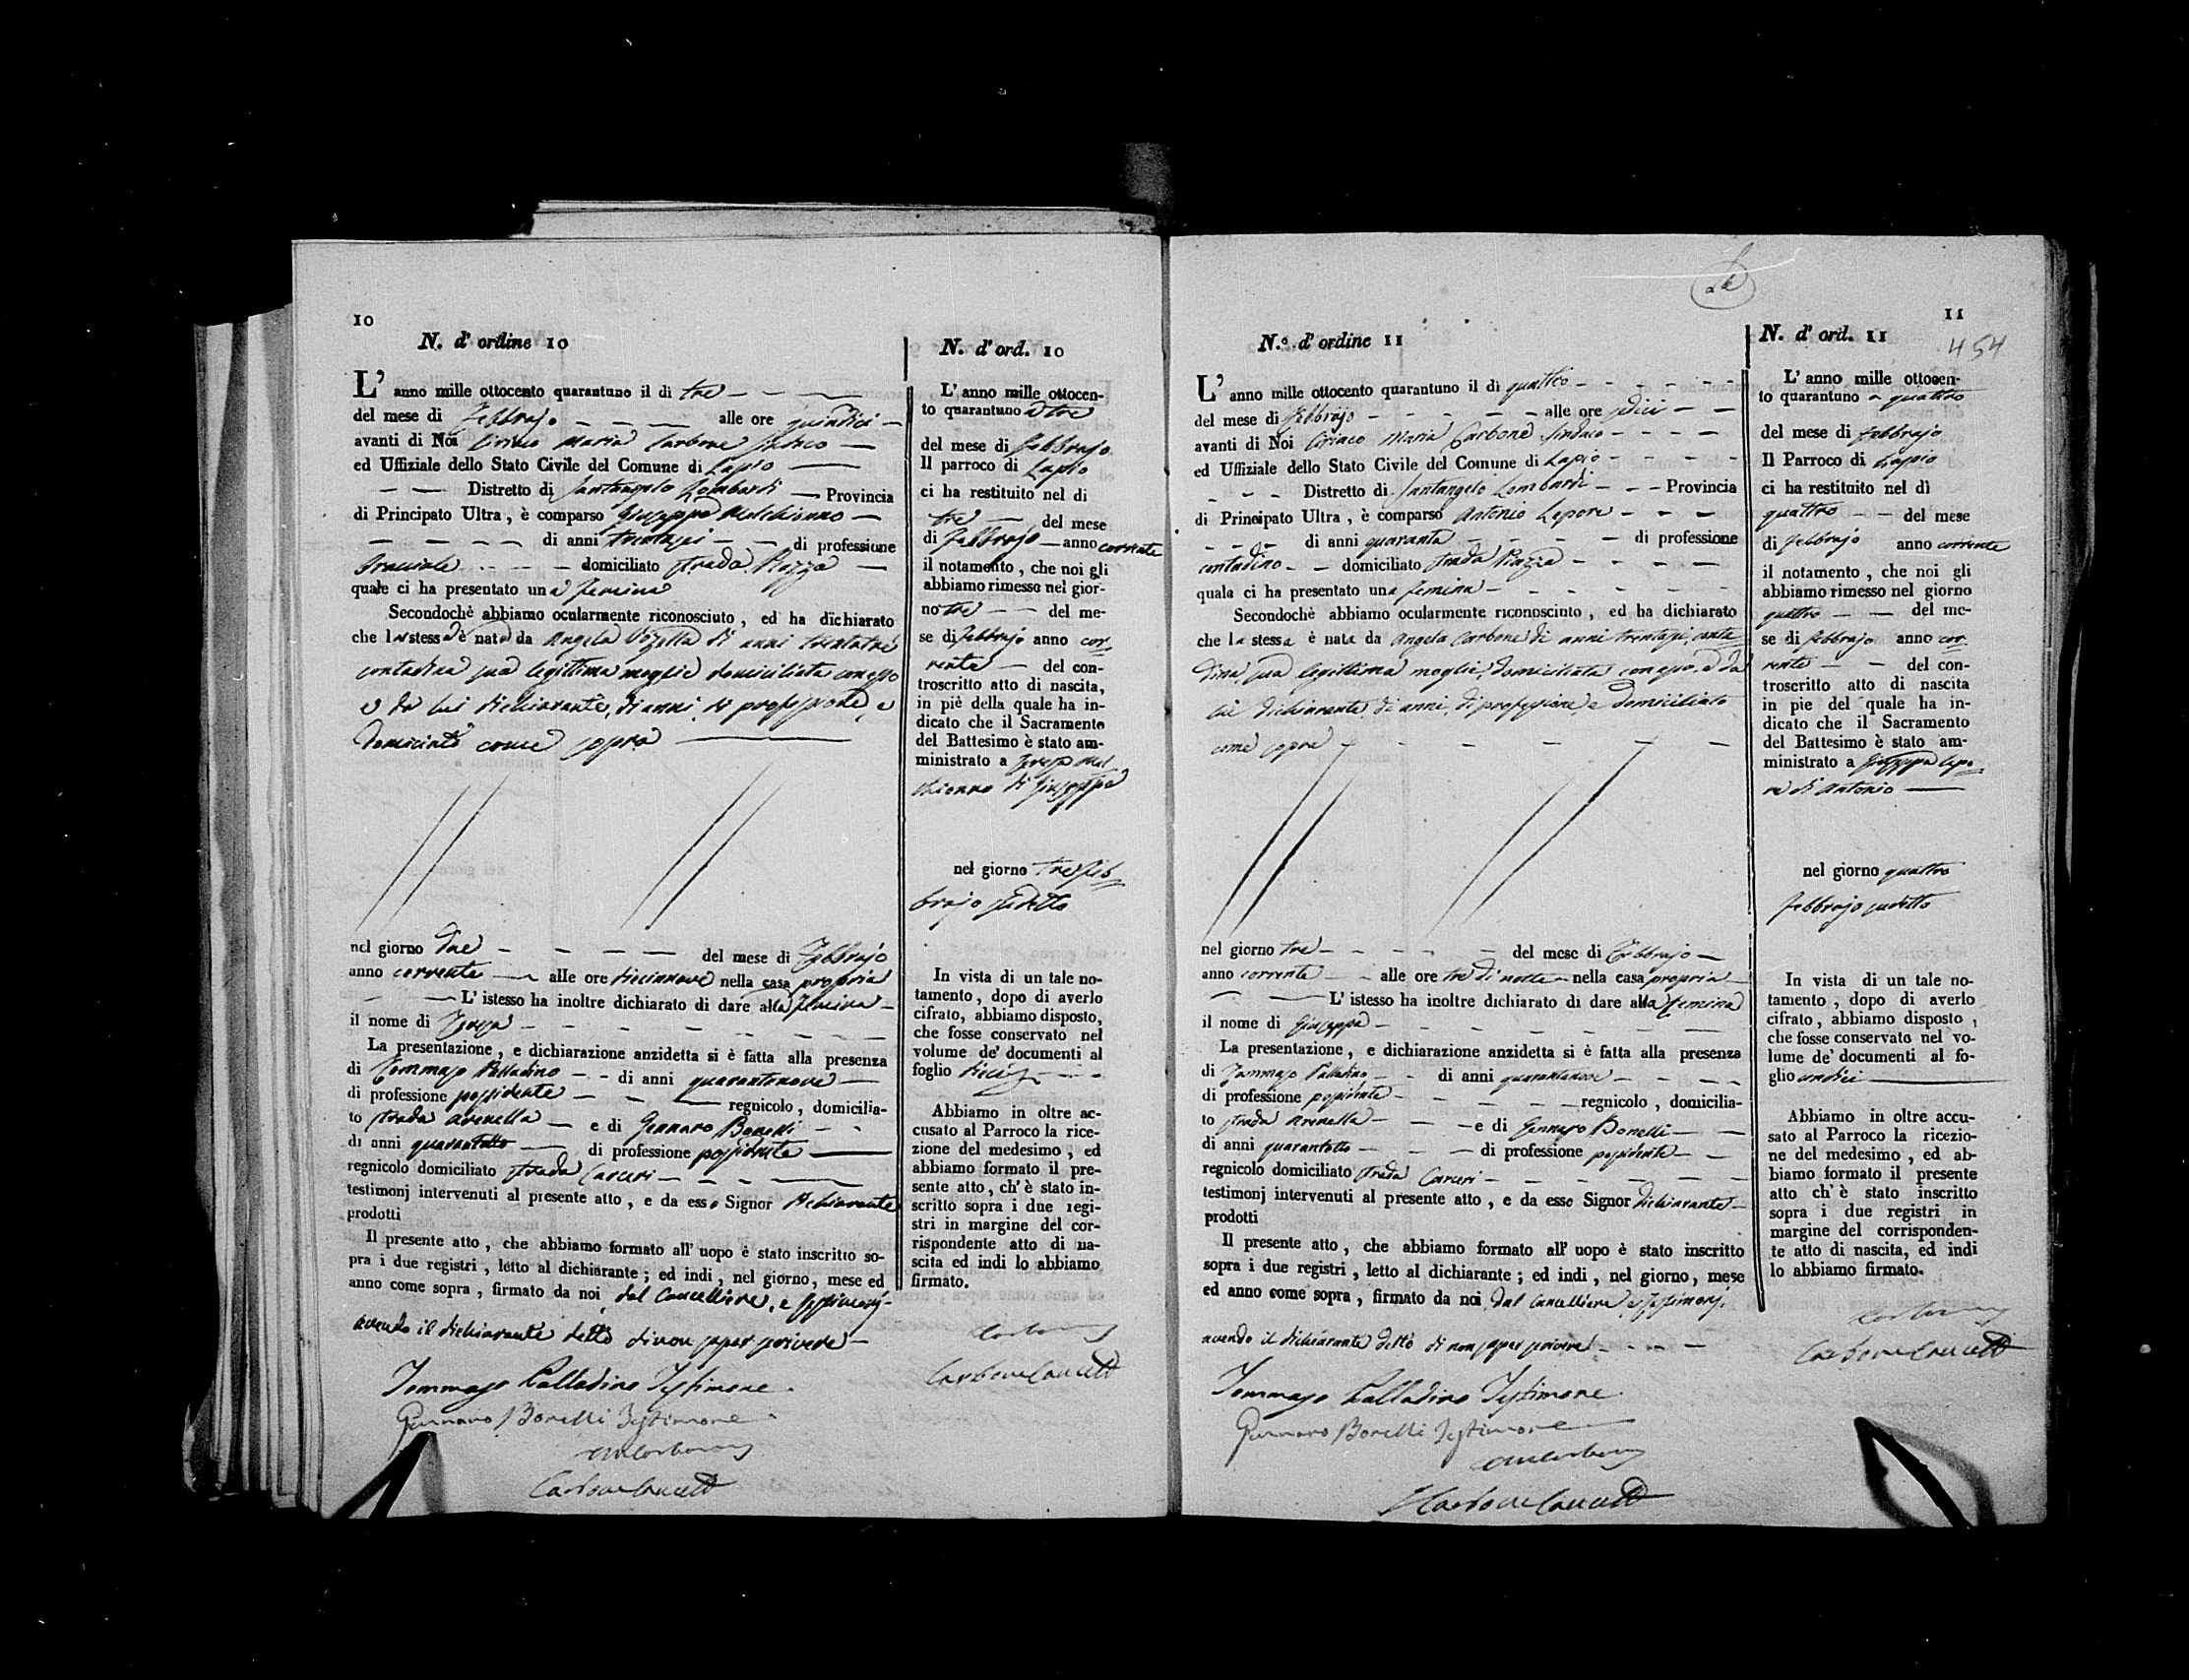 10
N. d' ordine 10
L' anno mille ottocento quarantuno il dì tre
del mese di Febbrajo alle ore quindici
avanti di Noi Ciriaco Maria Carbone Sindaco
ed Uffiziale dello Stato Civile del Comune di Lapio
Distretto di Santangelo Lombardi Provincia
di Principato Ultra, è comparso Giuseppe Melchionno
di anni trentasei di professione
Bracciale domiciliato strada Piazza
quale ci ha presentato una femina
Secondochè abbiamo ocularmente riconosciuto, ed ha dichiarato
che la stessa è nata da Angela Vozella di anni trentatré
contadina sua legittima moglie domiciliata con esso
e da lui dichiarante, di anni, di professione, e
domiciliato come sopra
nel giorno due del mese di Febbrajo
anno corrente alle ore diecinnove nella casa propria
L' istesso ha inoltre dichiarato di dare alla femina
il nome di Teresa
La presentazione, e dichiarazione anzidetta si è fatta alla presenza
di Tommaso Palladino di anni quarantanove
di professione possidente regnicolo, domicilia-
to strada Arenella e di Gennaro Bonelli
di anni quarantotto di professione possidente
regnicolo domiciliato strada Carceri
testimonj intervenuti al presente atto, e da esso Signor dichiarante
prodotti
Il presente atto, che abbiamo formato all' uopo è stato inscritto so-
pra i due registri, letto al dichiarante; ed indi, nel giorno, mese ed
anno come sopra, firmato da noi, dal Cancelliere, e testimonj
avendo il dichiarante detto di non saper scrivere
Tommaso Palladino Testimone
Gennaro Bonelli Testimone
Carbone Cancell
N. d' ord. 10
L' anno mille ottocen-
to quarantuno a tre
del mese di febbrajo
Il parroco di Lapio
ci ha restituito nel dì
tre del mese
di febbrajo anno corrente
il notamento, che noi gli
abbiamo rimesso nel gior-
no tre del me-
se di febbrajo anno cor-
rente del con-
troscritto atto di nascita,
in piè della quale ha in-
dicato che il Sacramento
del Battesimo è stato am-
ministrato a Teresa Mel
chionno di Giuseppe
nel giorno tre feb
brajo sudetto
In vista di un tale no-
tamento, dopo di averlo
cifrato, abbiamo disposto,
che fosse conservato nel
volume de' documenti al
foglio dieci
Abbiamo in oltre ac-
cusato al Parroco la rice-
zione del medesimo, ed
abbiamo formato il pre-
sente atto, ch' è stato in-
scritto sopra i due regi-
stri in margine del cor-
rispondente atto di na-
scita ed indi lo abbiamo
firmato.
Carbone Cancell
11
454
N.º d' ordine 11
L' anno mille ottocento quarantuno il dì quattro
del mese di Febbrajo alle ore sedici
avanti di Noi Ciriaco Maria Carbone Sindaco
ed Uffiziale dello Stato Civile del Comune di Lapio
Distretto di Santangelo Lombardi Provincia
di Principato Ultra, è comparso Antonio Lepore
di anni quaranta di professione
contadino domiciliato strada Piazza
quale ci ha presentato una femina
Secondochè abbiamo ocularmente riconosciuto, ed ha dichiarato
che la stessa è nata da Angela Carbone di anni trentasei, conta
dina, sua legittima moglie, domiciliata con esso, e da
lui dichiarante, di anni, di professione, e domiciliato
come sopra
nel giorno tre del mese di Febbrajo
anno corrente alle ore tre di notte nella casa propria
L' istesso ha inoltre dichiarato di dare alla femina
il nome di Giuseppa
La presentazione, e dichiarazione anzidetta si è fatta alla presenza
di Tommaso Palladino di anni quarantanove
di professione possidente regnicolo, domicilia-
to strada Arenella e di Gennaro Bonelli
di anni quarantotto di professione possidente
regnicolo domiciliato strada Carceri
testimonj intervenuti al presente atto, e da esso Signor dichiarante
prodotti
Il presente atto, che abbiamo formato all' uopo è stato inscritto
sopra i due registri, letto al dichiarante; ed indi, nel giorno, mese
ed anno come sopra, firmato da noi, dal Cancelliere e testimonj,
avendo il dichiarante detto di non saper scrivere
Tommaso Palladino Testimone
Gennaro Bonelli Testimone
Carbone Cancell
N. d' ord. 11
L' anno mille ottocen-
to quarantuno a quattro
del mese di Febbrajo
Il Parroco di Lapio
ci ha restituito nel dì
quattro del mese
di febbrajo anno corrente
il notamento, che noi gli
abbiamo rimesso nel giorno
quattro del me-
se di febbrajo anno cor-
rente del con-
troscritto atto di nascita
in pie del quale ha in-
dicato che il Sacramento
del Battesimo è stato am-
ministrato a Giuseppa Lepo-
re di Antonio
nel giorno quattro
febbrajo sudetto
In vista di un tale no-
tamento, dopo di averlo
cifrato, abbiamo disposto,
che fosse conservato nel vo-
lume de' documenti al fo-
glio undici
Abbiamo in oltre accu-
sato al Parroco la ricezio-
ne del medesimo, ed ab-
biamo formato il presente
atto ch' è stato inscritto
sopra i due registri in
margine del corrisponden-
te atto di nascita, ed indi
lo abbiamo firmato.
Carbone Cancell